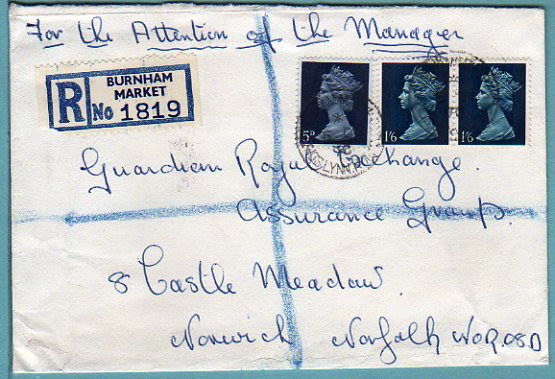 For the Attention of the Manager
BURNHAM
MARKET
R No 1819
5D
1/6
1/6
LYNN
Guardian Royal Exchange.
Assurance Group.
8 Castle Meadow.
Norwich Norfolk NOR 08D